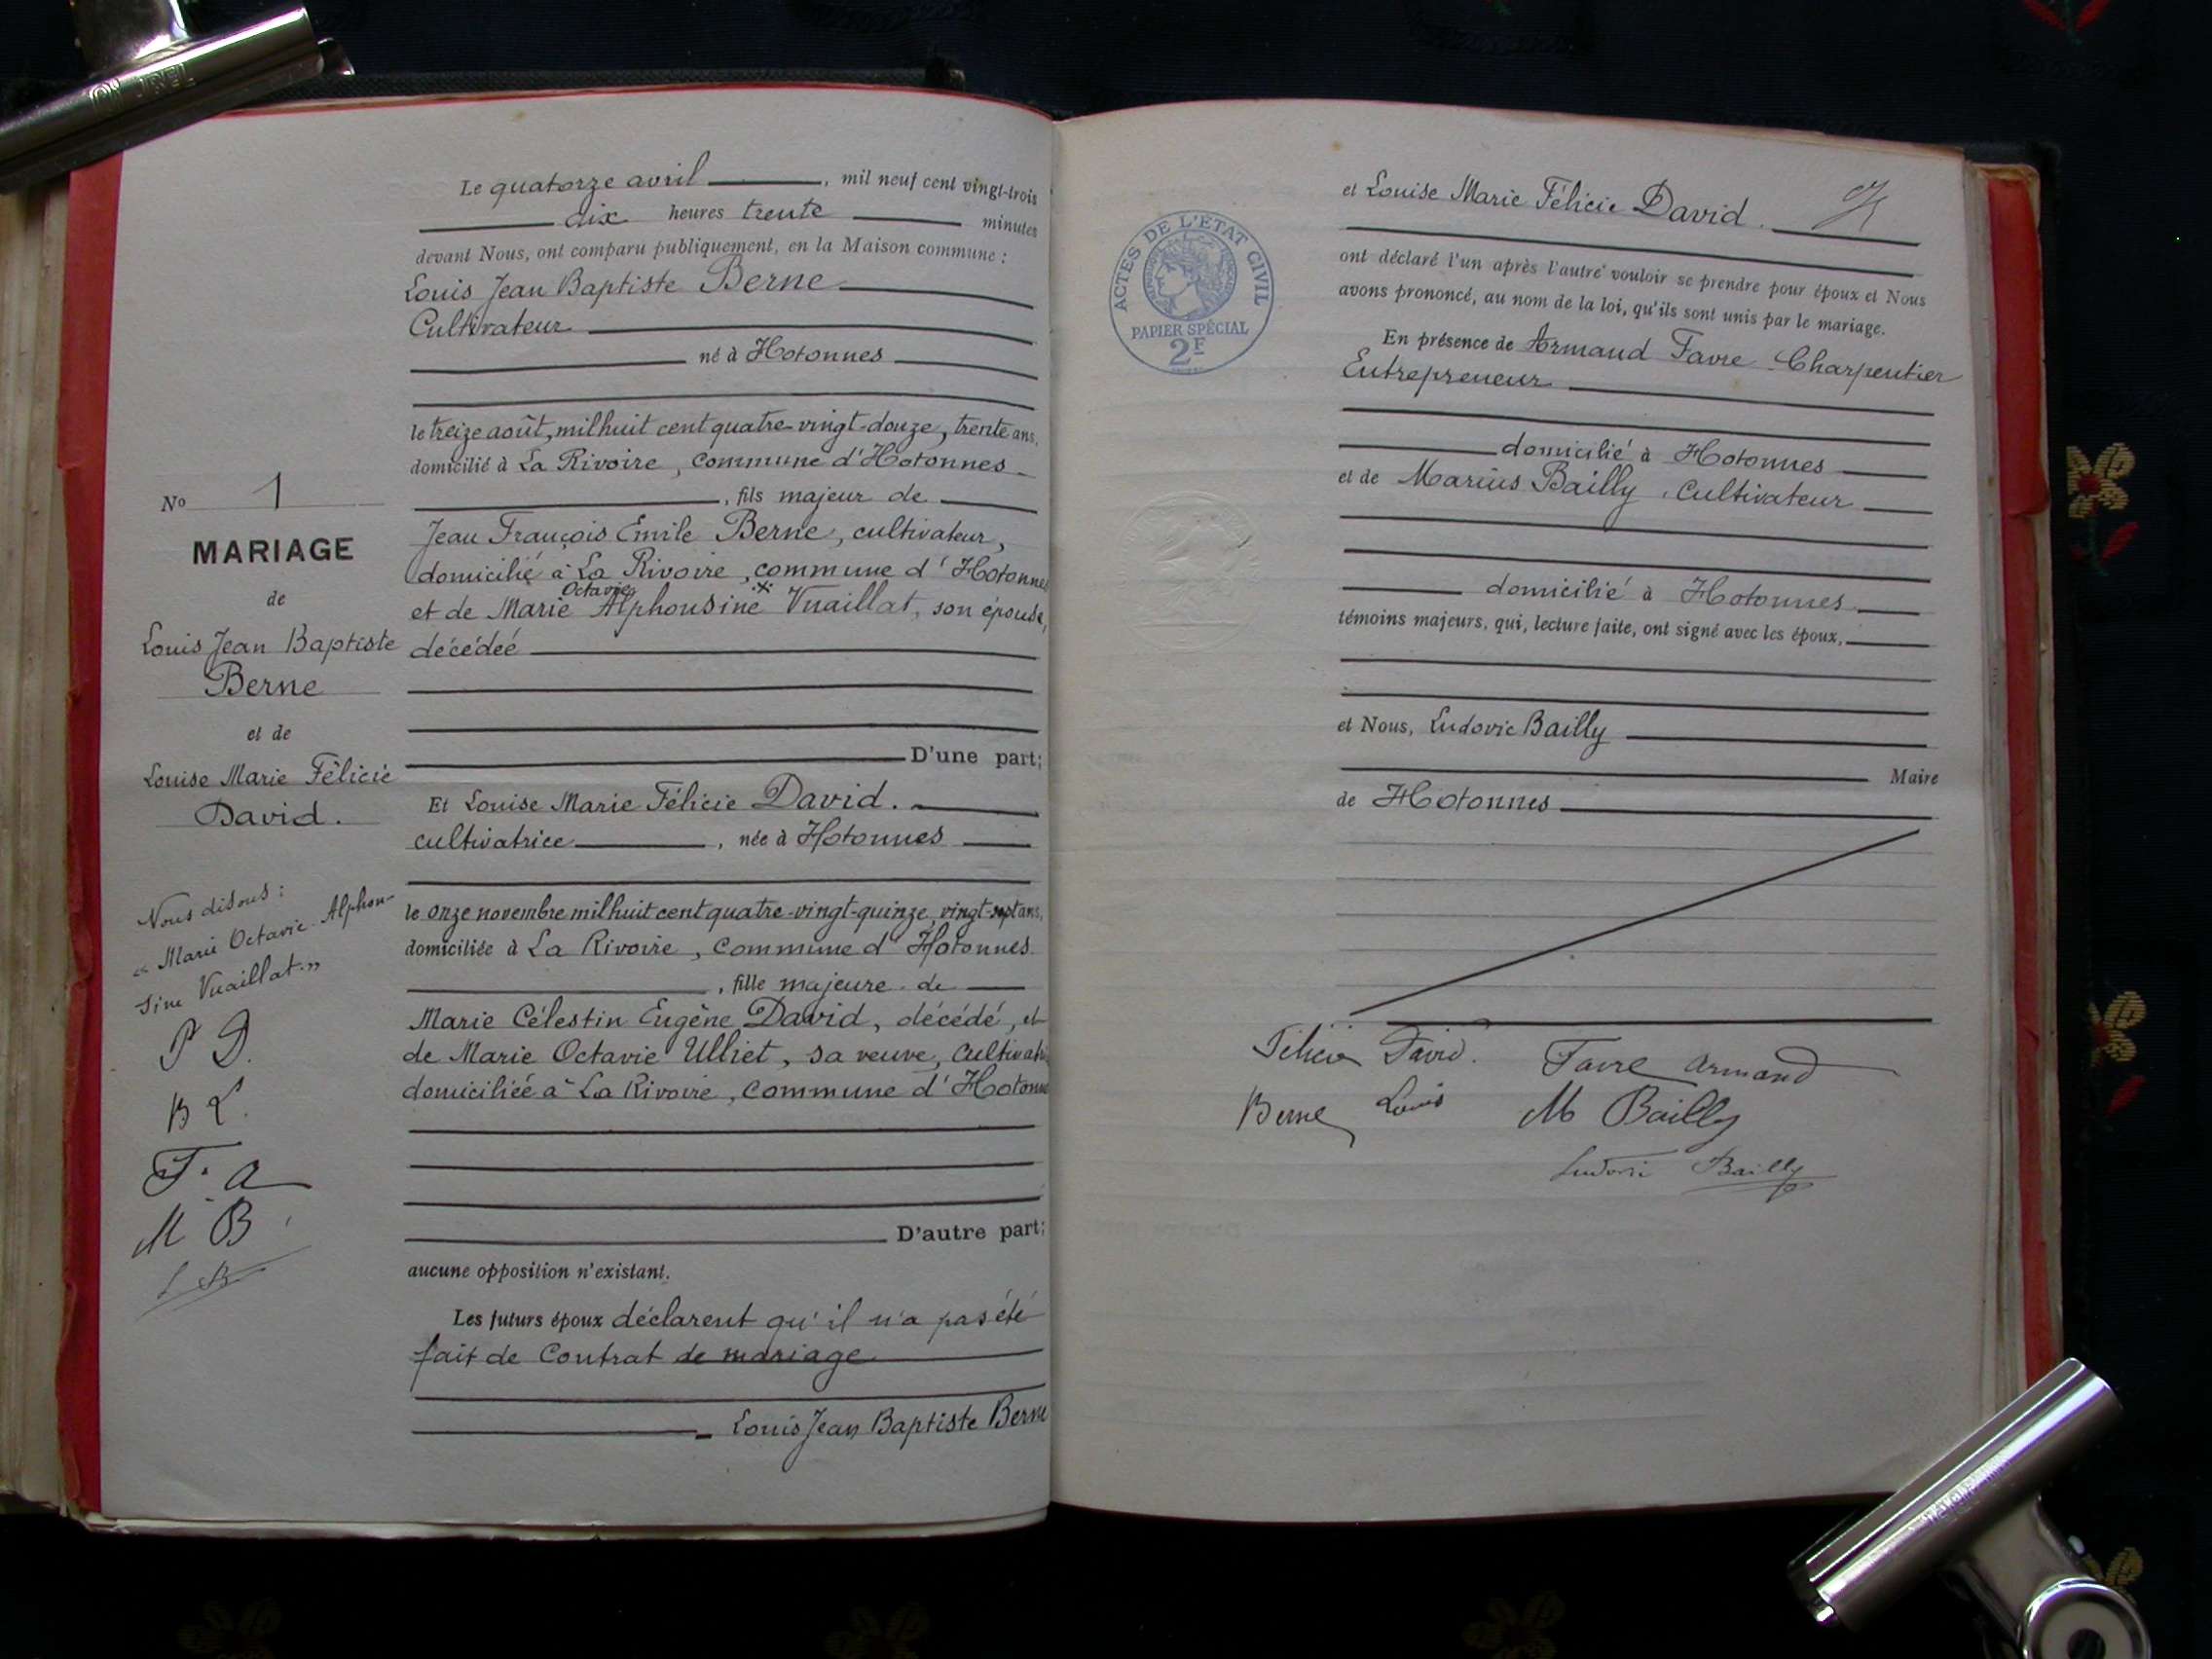 Le quatorze avril, mil neuf cent vingt-trois
dix heures trente minutes
devant Nous, ont comparu publiquement, en la Maison commune :
Louis Jean Baptiste Berne
Cultivateur
né à Hotonnes
le treize août, mil huit cent quatre-vingt-douze, trente ans,
domicilié à La Rivoire, commune d'Hotonnes
, fils majeur de
Jean François Emile Berne, cultivateur,
domicilié à La Rivoire, commune d'Hotonnes
Octavie
et de Marie Alphonsine Vuaillat, son épouse,
décédée
D'une part;
Et Louise Marie Félicie David.
cultivatrice, née à Hotonnes
le onze novembre mil huit cent quatre-vingt-quinze, vingt-sept ans,
domiciliée à La Rivoire, commune d'Hotonnes
, fille majeure de
Marie Célestin Eugène David, décédé, et
de Marie Octavie Ulliet, sa veuve, cultivatri
domiciliée à La Rivoire, commune d'Hotonne
D'autre part;
aucune opposition n'existant.
Les futurs époux déclarent qu'il n'a pas été
fait de contrat de mariage
Louis Jean Baptiste Berne
No 1
MARIAGE
de
Louis Jean Baptiste
Berne
et de
Louise Marie Félicie
David.
Nous disons :
« Marie Octavie Alphon-
sine Vuaillat »
B L.
F. a
M B
L B
ACTES DE L'ETAT CIVIL
PAPIER SPÉCIAL
2F
et Louise Marie Félicie David.
ont déclaré l'un après l'autre vouloir se prendre pour époux et Nous
avons prononcé, au nom de la loi, qu'ils sont unis par le mariage.
En présence de Armand Favre Charpentier
Entrepreneur
domicilié à Hotonnes
et de Marius Bailly, cultivateur
domicilié à Hotonnes
témoins majeurs, qui, lecture faite, ont signé avec les époux,
et Nous, Ludovic Bailly
Maire
de Hotonnes
Félicie David. Favre Armand
Berne Louis M Bailly
Ludovic Bailly